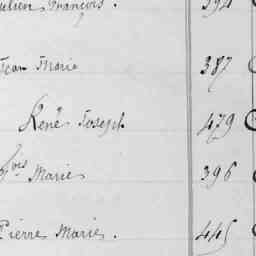 ulien François. 394
Jean Marie 387
René Joseph 479
fois Marie 396
Pierre Marie. 445